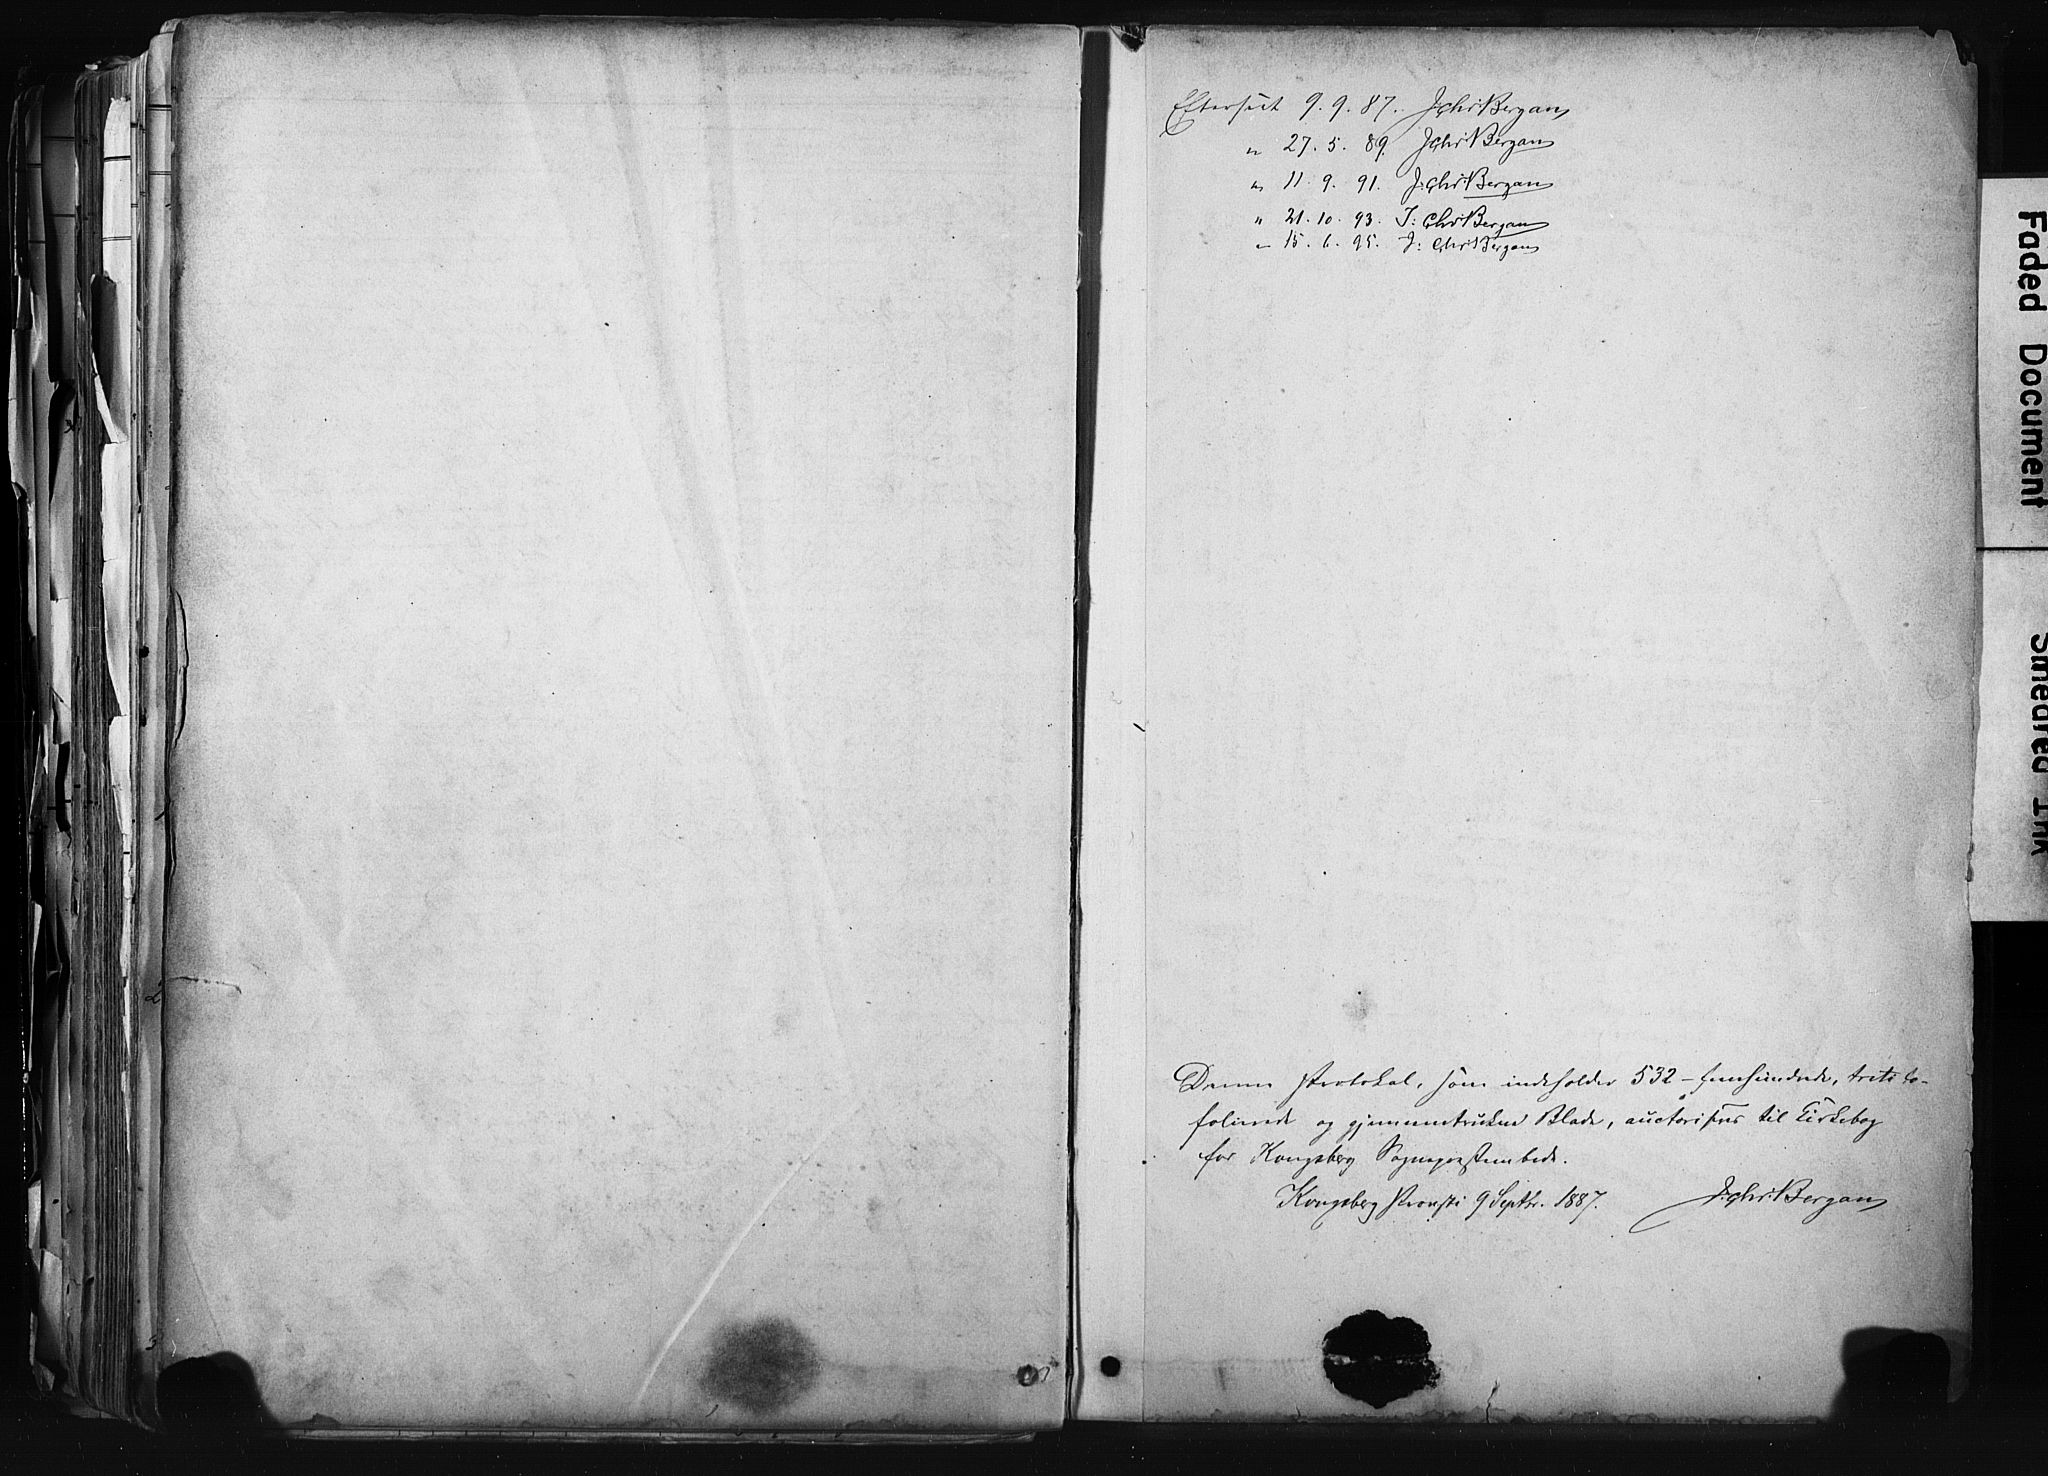 Efterseet 9. 9. 87. J: Chr: Bergan
" 27. 5. 89. J: Chr: Bergan
" 11. 9. 91. J: Chr: Bergan
" 21. 10. 93. J: Chr: Bergan
" 15. 6. 95. J: Chr: Bergan
Denne Protokol, som indeholder 532 – femhundrede, treti to –
folierede og gjennemtrukne Blade, auctoriseres til Kirkebog
for Kongsberg Sognepræstembede.
Kongsberg Provsti 9 Septbr. 1887. J: Chr: Bergan
Faded Document
Smeared Ink